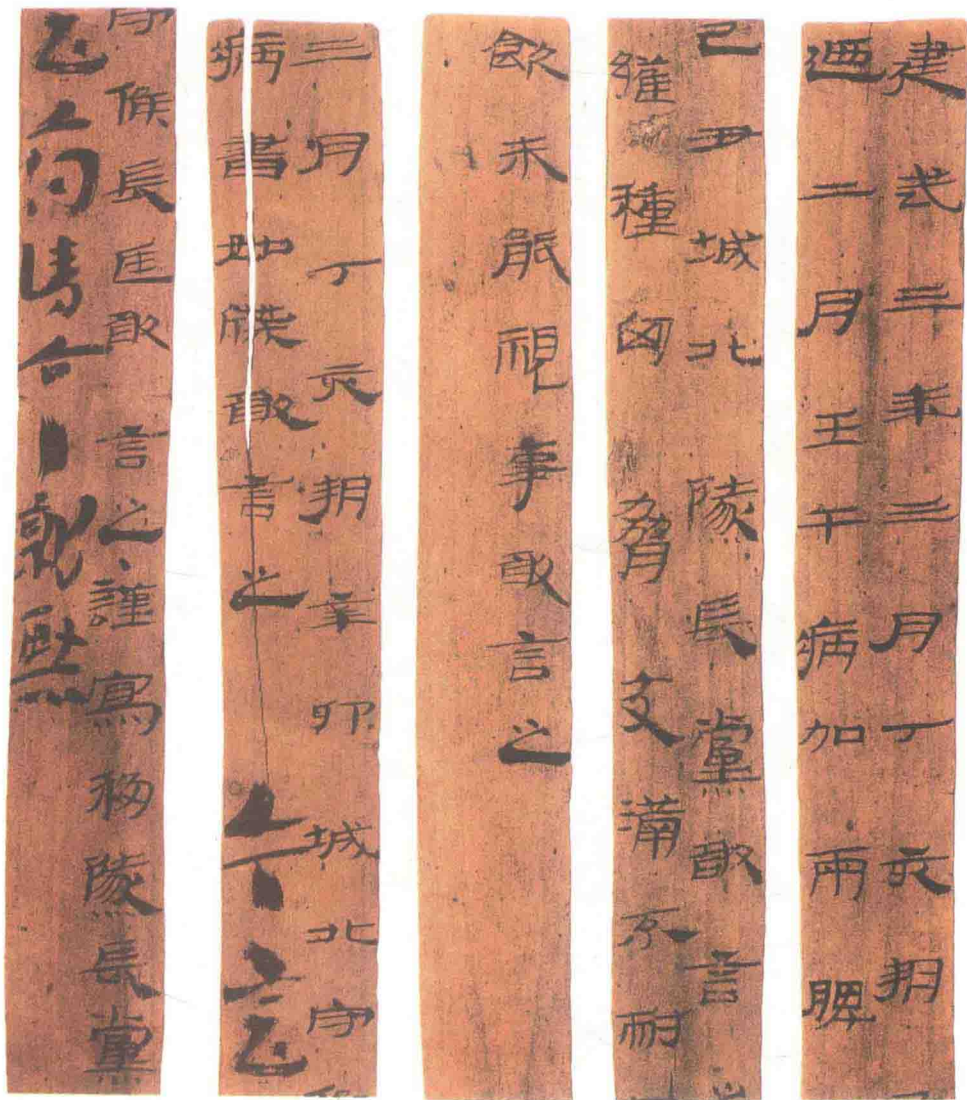 建武三年三月丁亥朔
迺二月壬午病加兩脾
己丑城北隧長黨敢言
雍種匈脅丈滿不耐
飲未能視事敢言之
三月丁亥朔辛卯城北守
病書如牒敢言之　今言
候長匡敢言之謹寫移隧長黨
府請令就醫